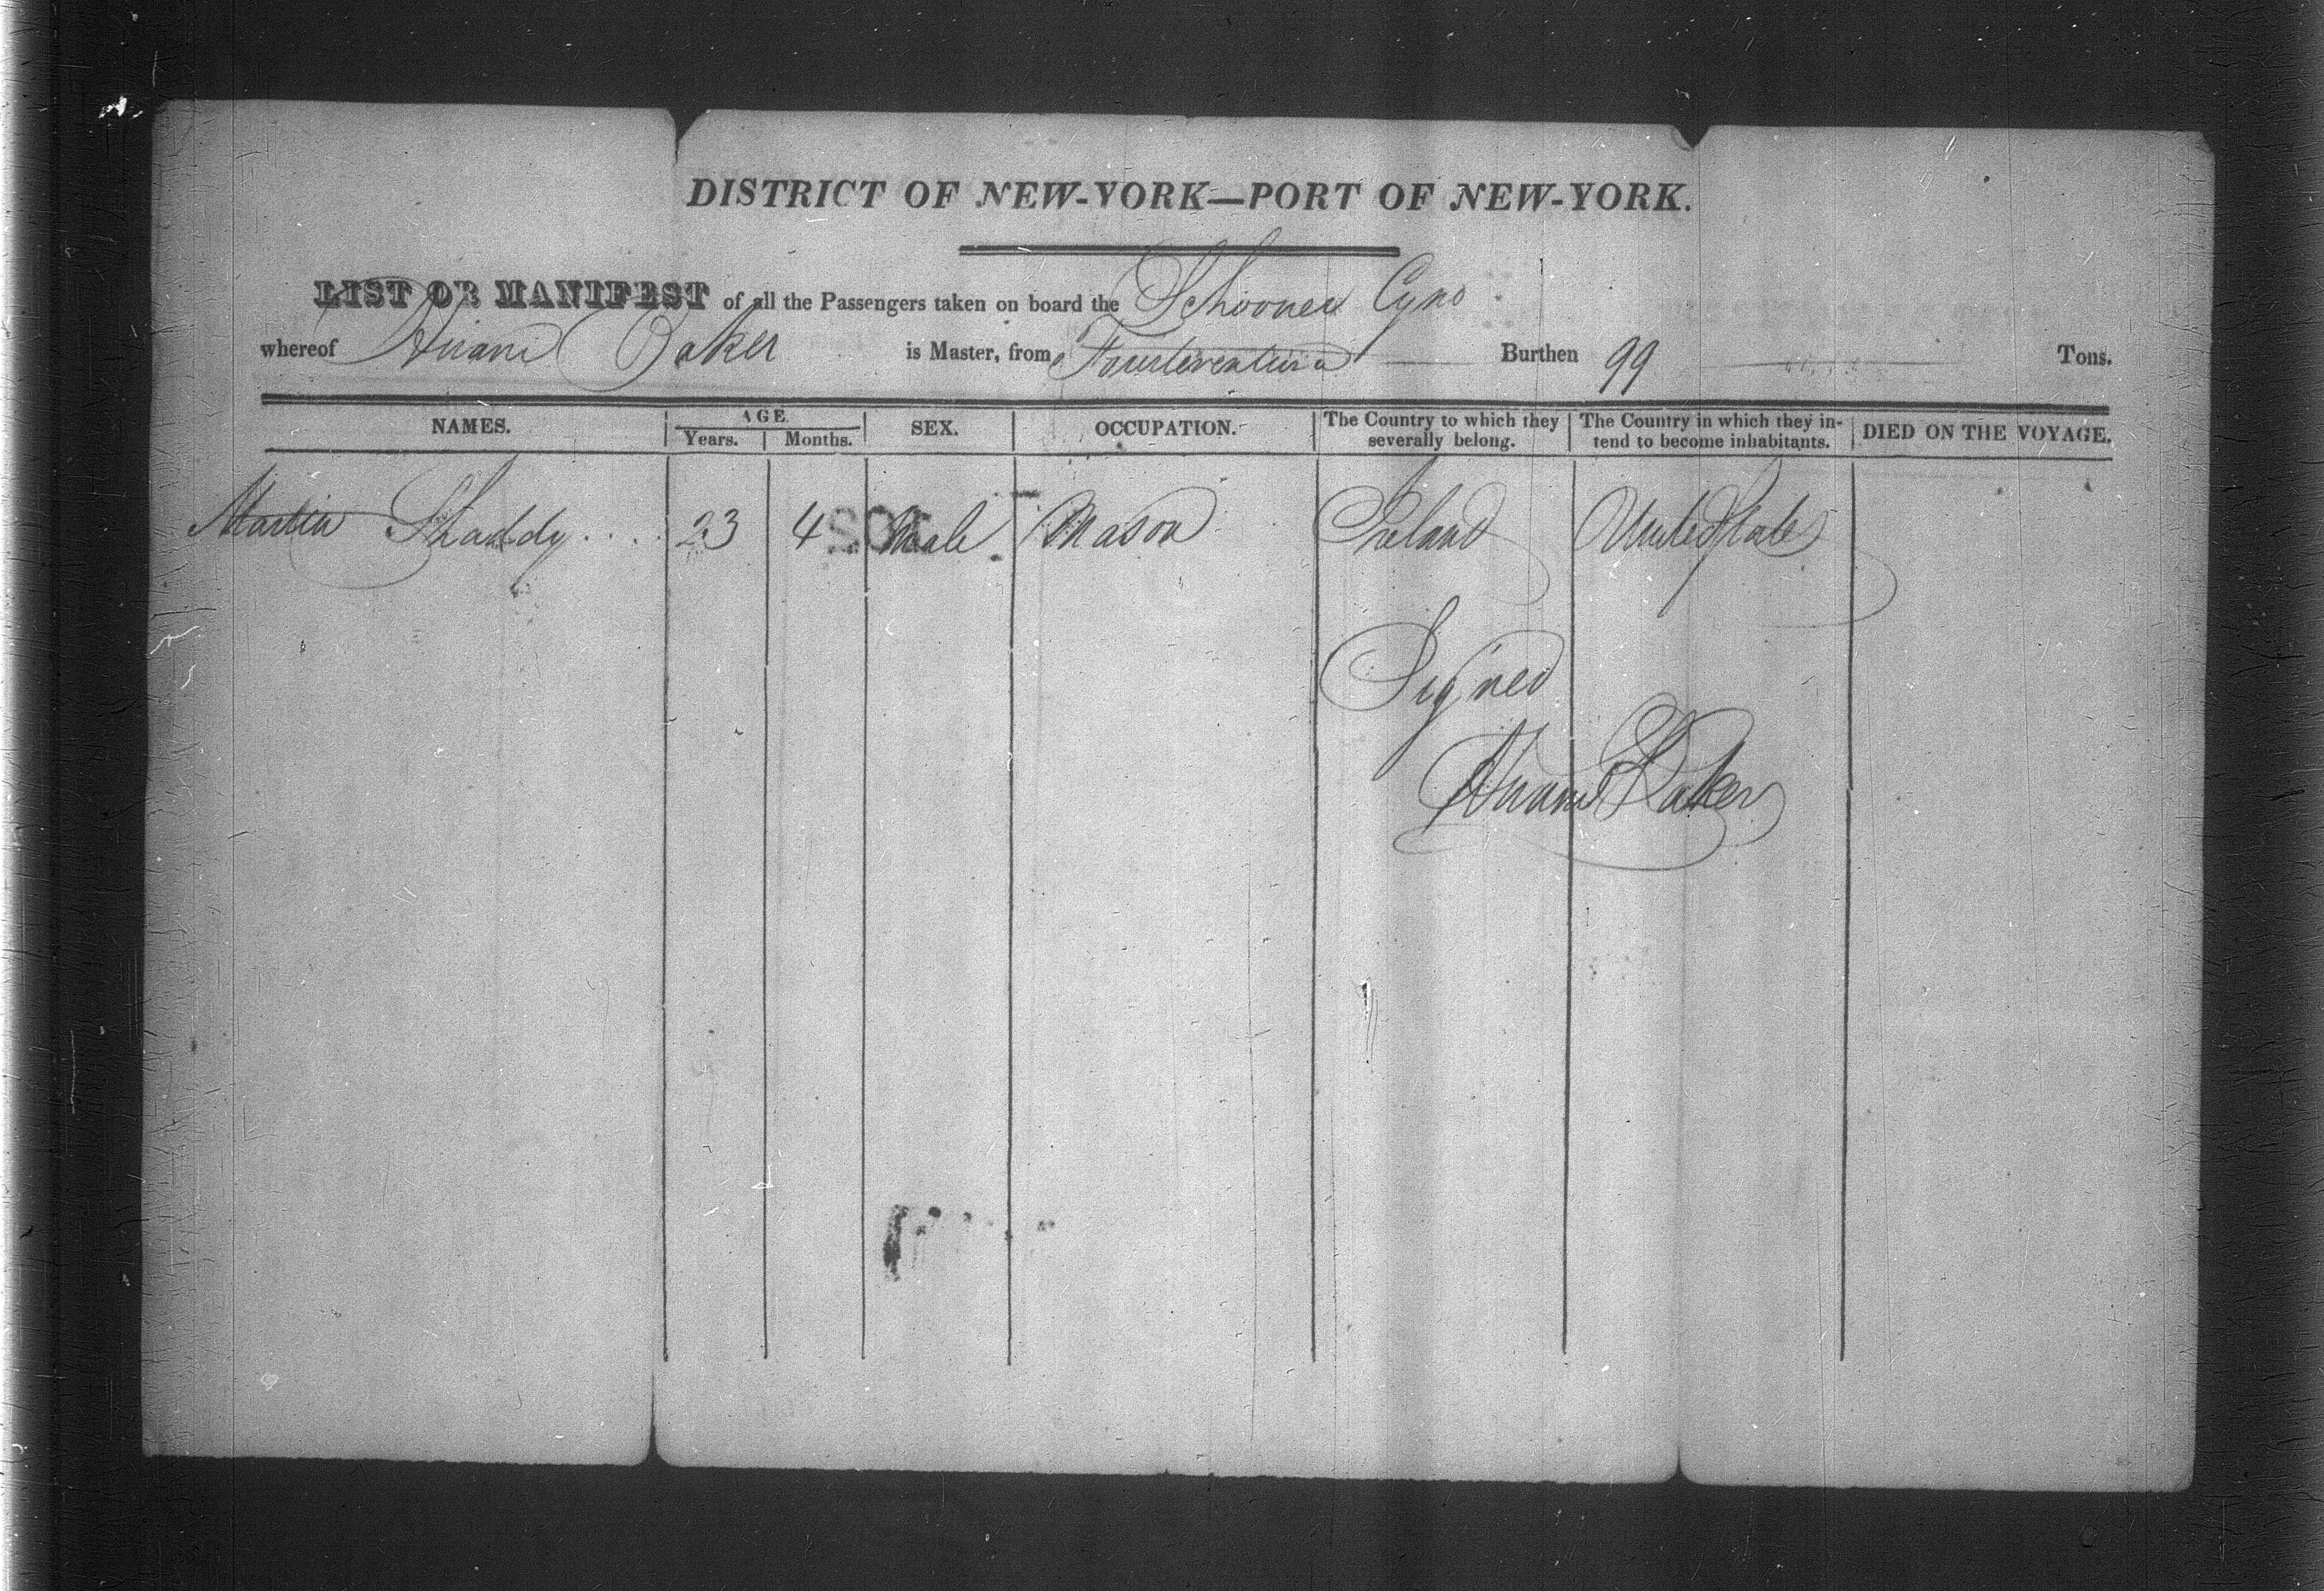 DISTRICT OF NEW-YORK—PORT OF NEW-YORK.
LIST OR MANIFEST of all the Passengers taken on board the Schooner Cyno
whereof Hiram Baker is Master, from Fourteventura Burthen 99 Tons.
NAMES. AGE. Years. Months. SEX. OCCUPATION. The Country to which they severally belong. The Country in which they intend to become inhabitants. DIED ON THE VOYAGE.
Martin Shaddy .... 23 4 Male Mason Ireland United States
Signed
Hiram Baker